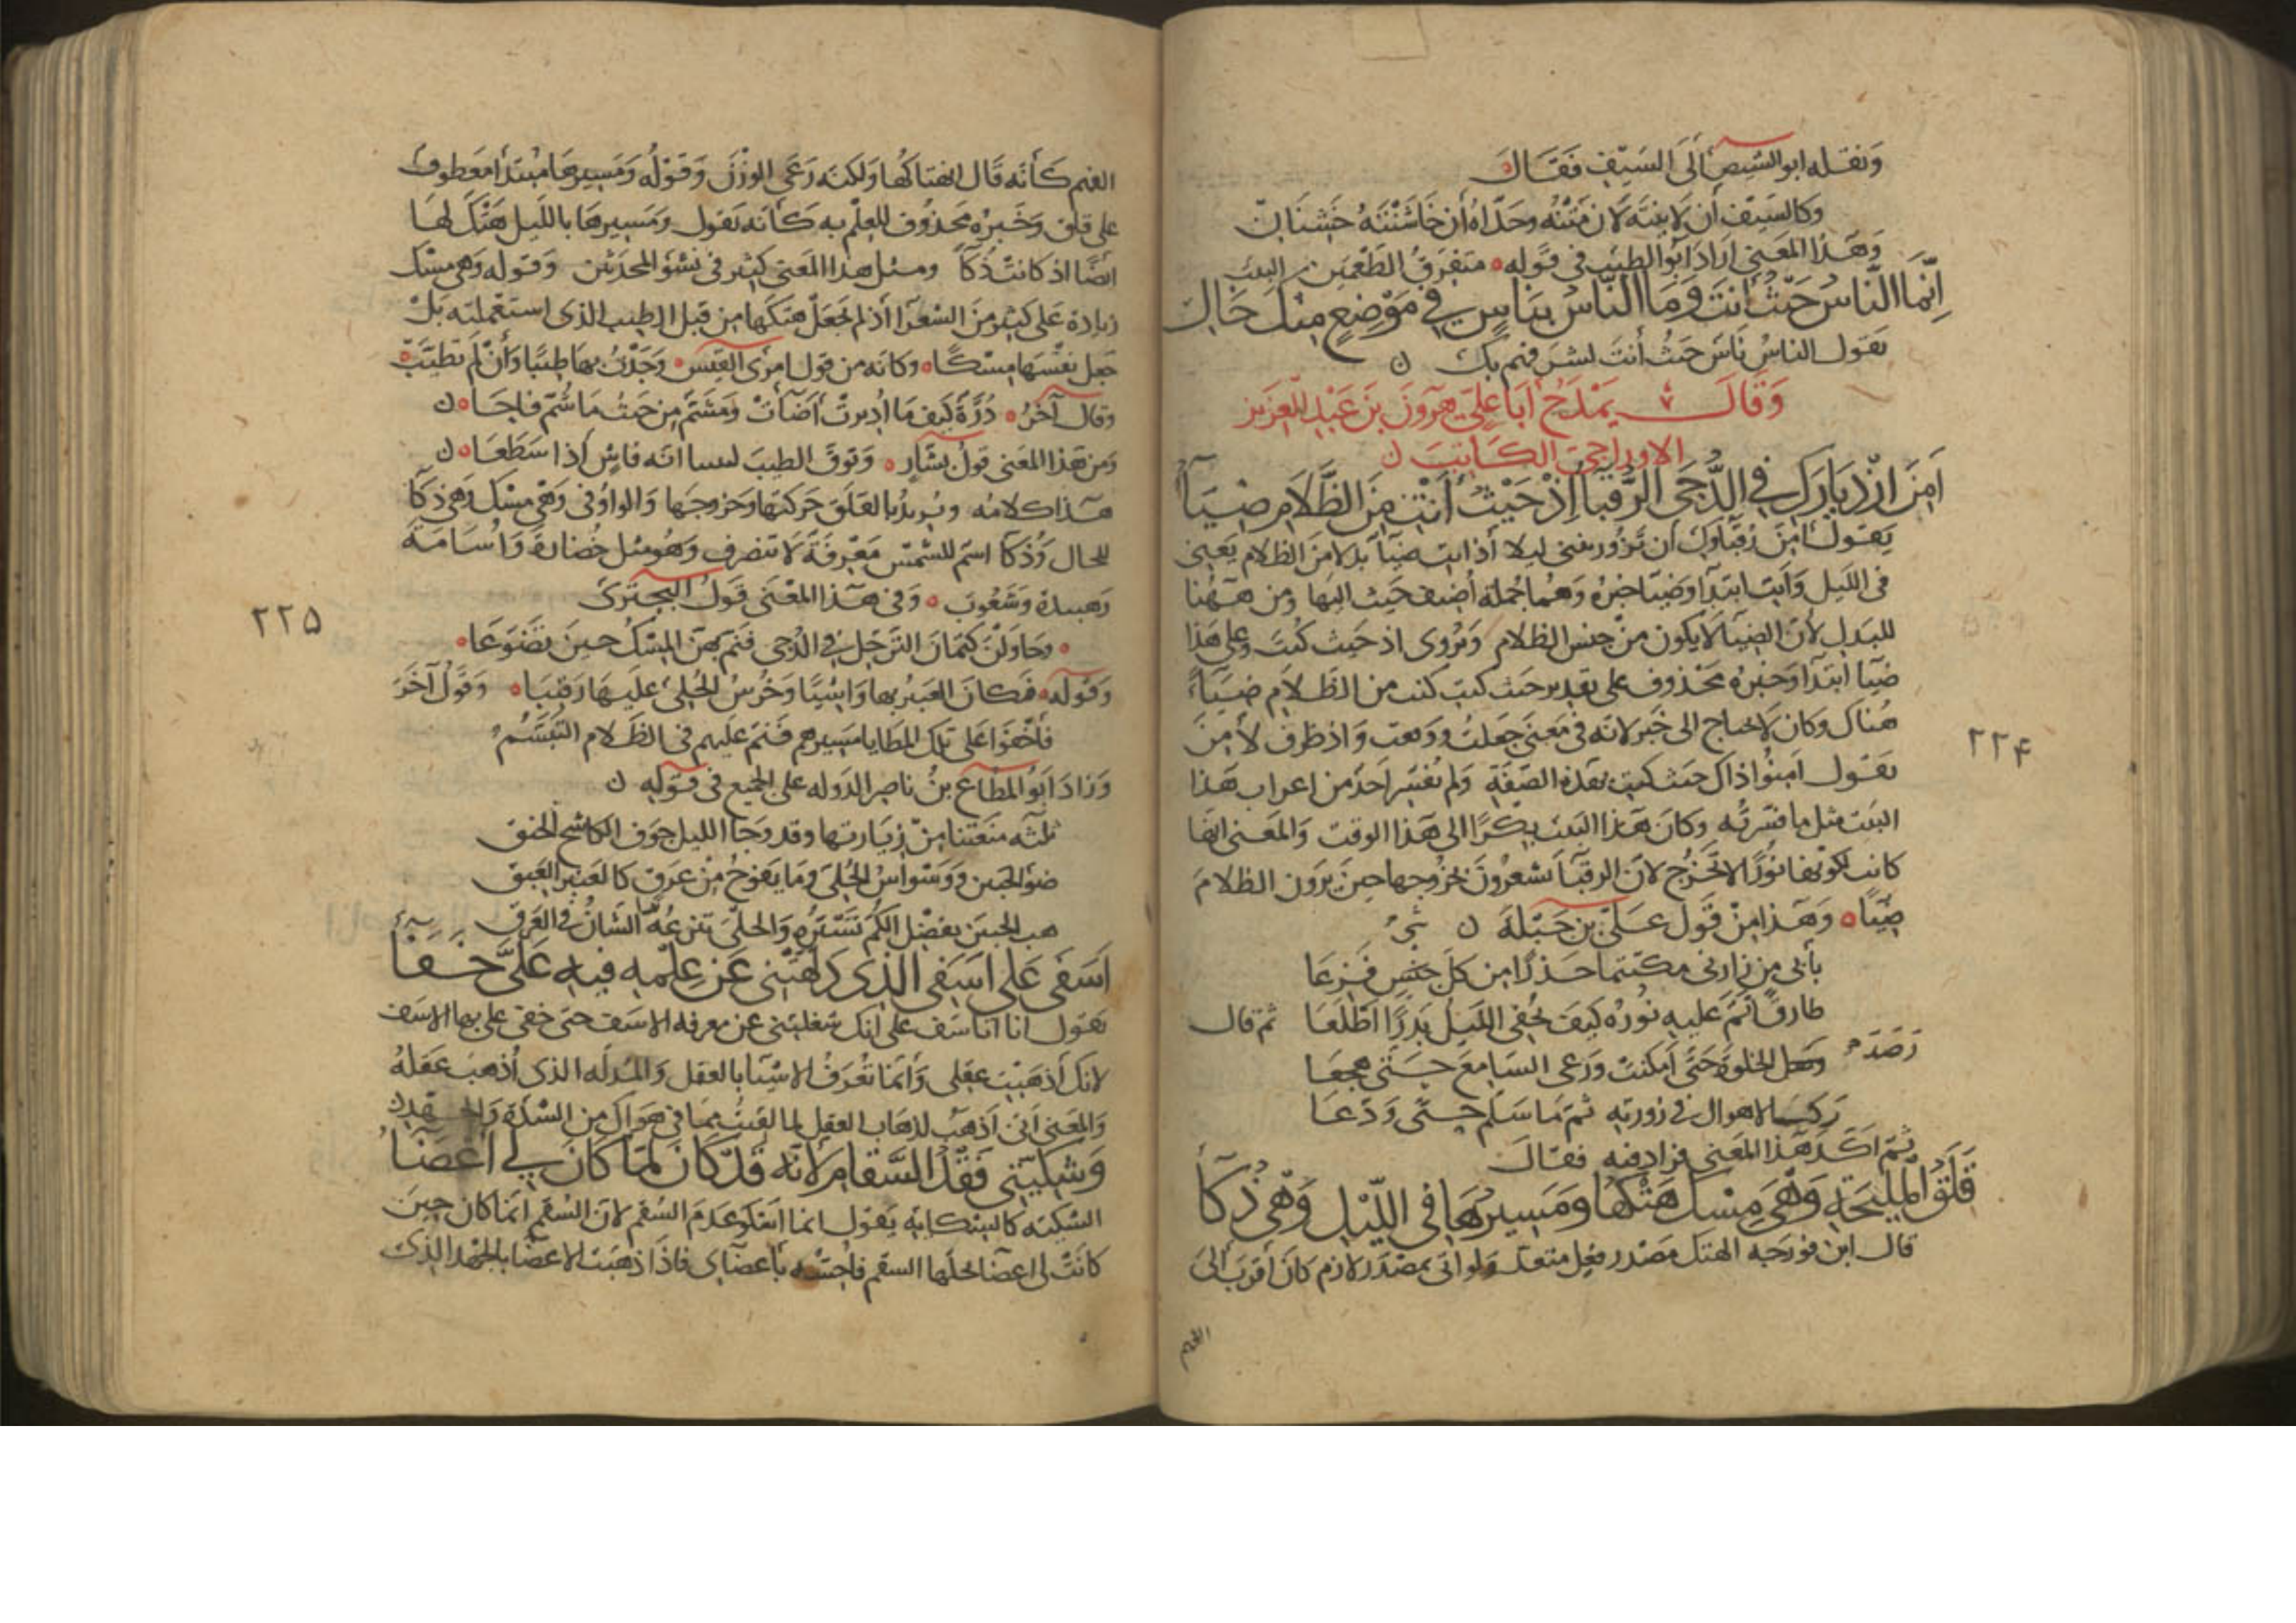 ونقله ابو الشيص الى السيف فقال
وكالسيف ان لاينته لان متنه وحداه ان خاشنته خشنان
وهذا المعنى اراد ابو الطيب في قوله متفرق الطعمين البيت
إنما الناس حيث أنت وما الناس بناس في موضع منك خال
يقول الناس ناس حيث أنت لست فيهم بك ن
وقال يمدح أبا علي هرون بن عبد العزيز
الاوراجي الكاتب ن
أمن ازديارك في الدجى الرقبا إذ حيث أنت من الظلام ضياء
يقول امن رقباوك ان تزوريني ليلا اذ انت ضياء بدلا من الظلام يعني
في الليل وانت ابتدا وضيا خبره وهما جملة أضيف حيث اليها ومن ههنا
للبدل لأن الضيا لا يكون من جنس الظلام ويروى اذ حيث كنت وعلى هذا
ضيا ابتدا وخبره محذوف على تقدير حيث كنت من الظلام ضياء
هناك وكان لا يحتاج الى خبر لانه في معنى حصلت ووقعت واذ ظرف لأمن
يقول امنوا ذاك حيث كنت بهذه الصفة ولم يفسر احد من اعراب هذا
البيت مثل ما فسرته وكان هذا البيت بكرا الى هذا الوقت والمعنى انها
كانت لكونها نورا لا تخرج لان الرقبا يشعرون بخروجها حين يرون الظلام
ضيا وهذا من قول علي بن جبلة ن
بأبي من زارني مكتتما حذرا من كل جنس فزعا
طارق نم عليه نوره كيف يخفي الليل بدرا اطلعا ثم قال
رصد
الخلوة حتى أمكنت ورعى السامع حتى هجعا
ركب الاهوال في زورته ثم ما سلم حتى ودعا
ثم اكد هذا المعنى فزاد فيه فقال
قلق المليحة وهي مسك هتكها ومسيرها في الليل وهي ذكاء
قال ابن فورجه الهتك مصدر فعل متعد ولو اتى بمصدر لازم كان أقرب الى
الفهم
٢٢۴
الفهم كأنه قال انهتاكها ولكنه رعى الوزن وقوله ومسيرها مبتدا معطوف
على قلق وخبره محذوف للعلم به كأنه يقول ومسيرها بالليل هتك لها
ايضا اذ كانت ذكا ومثل هذا المعنى كثير في شعر المحدثين وقوله وهي مسك
زيادة على كثير من الشعرا اذ لم يجعل هتكها من قبل الطيب الذي استعملته بل
جعل نفسها مسكا وكانه من قول امرى القيس وجدت بها طيبا وان لم تطيب
وقال آخر درة كيف ما اديرت أضأت ومشم من حيث ما شم فاحا ن
ومن هذا المعنى قول بشار وتوق الطيب ليلتنا انه فاش اذا سطعا ن
هذا كلامه ويريد بالقلق حركتها وخروجها والواو في وهي مسك وهي ذكا
للحال وذكا اسم للشمس معرفة لا تنصرف وهو مثل خضارة واسامة
وهنيدة وشعوب وفي هذا المعنى قول البحترى
وحاولن كتمان الترحل في الدجى فنم بهن المسك حين تضوعا
وقوله فكان العبير بها واشيا وجرس الحلى عليها رقيبا وقول آخر
فأخفوا على تلك المطايا مسيرهم فنم عليهم في الظلام التبسم
وزاد ابو المطاع بن ناصر الدوله على الجميع في قوله ن
ثلثة منعتنا من زيارتها وقد دجا الليل خوف الكاشح الحنق
ضوء الجبين ووسواس الحلي وما يفوح من عرق كالعنبر العبق
هب الجبين بفضل الكم تستره والحلي تنزعه الشان في العرق
أسفي على أسفي الذي دلهتني عن علمه فبه علي خفاء
يقول انا انا سف على انك شغلتني عن معرفة الاسف حتى خفي علي بها الاسف
لانك أذهبت عقلي وانما تعرف الاشيا بالعقل والمدله الذي أذهب عقله
والمعنى انني اذهب لذهاب العقل لما لقيت مما في هواك من الشدة والجهد ن
وشكيتي فقد السقام لأنه قد كان لما كان لي أعضاء
الشكية كالشكاية يقول انما اشكو عدم السقم لان السقم انما كان حين
كانت لي اعضا يحلها السقم فاحسه بأعضاي فاذا ذهبت الاعضا بالجهد الذي
٢٢۵